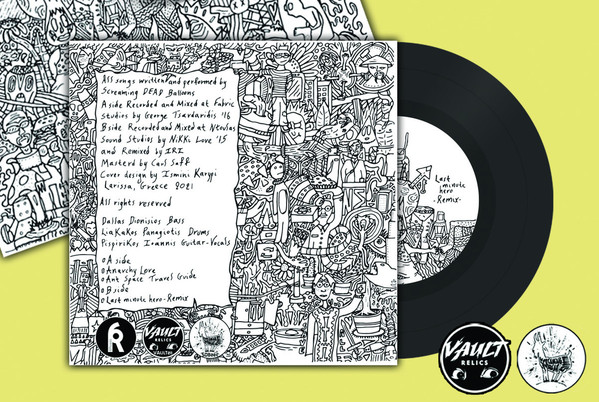 All songs written and performed by
Screaming DEAD Balloons
A side Recorded and Mixed at Fabric
studios by George Tsavdaridis '16
B side Recorded and Mixed at
Sound Studios by Nikki Love '15
and Remixed by IRI
Masterd by Carl Saff
Cover design by Ismini Karyyi
Larissa, Greece 2021
All rights reserved
Dallas Dionisios Bass
LiaKaKos Panagiotis Drums
Pispirikos Ioannis Guitar-Vocals
o A side
o Anarchy Love
o Ant Space Travel Guide
o B side
o Last minute hero-Remix
R
VAULT
RELICS
Last
minute
hero
-Remix-
VAULT
RELICS